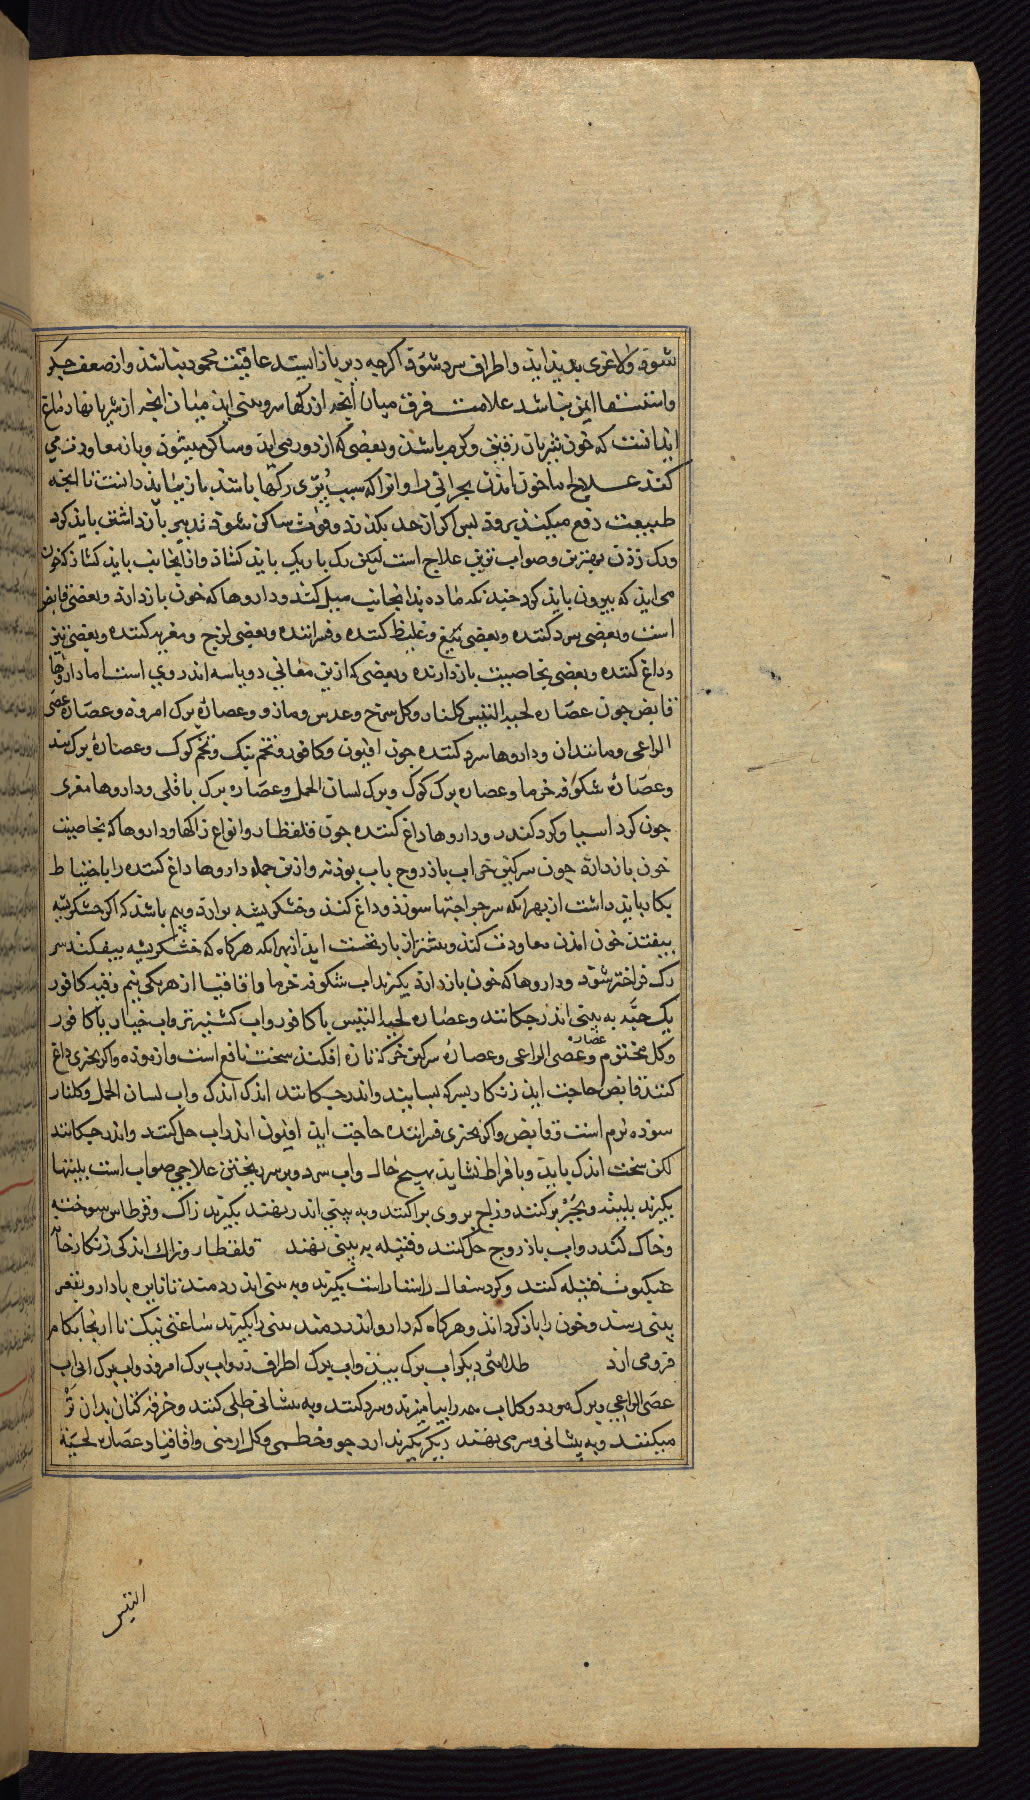 شود ولاغری بدید اید واطراف سرد شود اکرچه دیر باز ایستد عاقبت محمود نباشد واز ضعف جکر
واستسقا ایمن نباشد علامت فرق میان آنجه از رکها سر وبینی اید میان انجه از شریانها دماغ
اید انست که خون شریان رقیق وکرم باشد وبعضی که از دور می اید وساکن میشود وباز معاودت می
کند علاج اما خون امدن بحرانی را وانرا که سبب پُرّی رکها باشد باز نباید داشت تا انجه
طبیعت دفع میکند برود پس اکر از حد بکذرد وقوت ساکن شود تدبیر بازداشتن باید کرد
ورک زدن بهترین وصواب ترین علاج است لیکن رک باریک باید کشاد وازانجانب باید کشاد که خون
می اید که بیرون باید کرد چندانکه ماده بدانجانب میل کند وداروها که خون بازدارد وبعضی قابض
است وبعضی سرد کننده وبعضی تغلیظ کننده وفسراننده وبعضی لزج ومغریه کننده وبعضی تیز
وداغ کننده وبعضی بخاصیت بازدارنده وبعضی که ازین معانی دو یا سه اندر وی است اما داروها
قابض چون عصاره لحیة التیس وکلنار وکل سرخ وعدس ومازو وعصاره برک امرود وعصاره عصی
الراعی ومانند ان وداروها سرد کننده چون افیون وکافور وتخم بنک وتخم کوک وعصاره برک بید
وعصاره شکوفه خرما وعصاره برک کوک وبرک لسان الحمل وعصاره برک باقلی وداروها مغری
چون کرد اسیا وکرد کندر وداروها داغ کننده چون قلقطار وانواع زاکها وداروها که بخاصیت
خون بازدارد چون سرکین خر اب باذروج باب پودنه وازین جمله داروها داغ کننده را باحتیاط
بکار باید داشت از بهر انکه سر جراحتها سوزد وداغ کند وخشکریشه برارد وبیم باشد که اکر خشکریشه
بیفتد خون امدن معاودت کند وبیشتر از بار نخست اید از بهر انکه هرکاه که خشکریشه بیفکند سر
رک فراختر شود وداروها که خون بازدارد بکیرند اب شکوفه خرما واقاقیا از هر یکی نیم وقیه کافور
یک حبّه به بینی اندر چکانند وعصاره لحیة التیس با کافور واب کشنیز تر واب خیار با کافور
وکل مختوم وعصاره عصی الراعی وعصاره سرکین خر که تازه افکند سخت نافع است وازموده واکر بچیزی داغ
کننده قابض حاجت اید زنکار بسرکه بسایند واندر چکانند اندک اندک واب لسان الحمل وکلنار
سوده نرم است وقابض واکر بچیزی فسراننده حاجت اید افیون اندر اب حل کنند واندر چکانند
لکن سخت اندک باید وبافراط نشاید بهیچ حال واب سرد وبر سر ریختن علاجی صواب است بلیتها
بکیرند بلیته وبحبر تر کنند وزاج بر وی پراکنند وبه بینی اندر نهند بکیرند زاک وقرطاس سوخته
وخاک کندر واب باذروج حل کنند وفتیله به بینی نهند قلقطار وزاک اندکی زنکار خانه
عنکبوت فتیله کنند وکرد سفال راستا راست بکیرند وبه بینی اندر دمند تا نایره با دارو بقعر
بینی رسد وخون را باز کرداند وهرکاه که دارو اندر دمند بینی را بکیرند ساعتی نیک تا از انجا بکام
فرو می ارد طلائی دیکر اب برک بید واب برک اطراف رز واب برک امرود واب برک ابی اب
عصی الراعی وبرک مورد وکلاب همه را بیامیزند وسرد کنند وبه پیشانی طلی کنند وخرقه کتان بدان تر
میکنند وبه پیشانی وسر می نهند دیکر بکیرند ارد جو وخطمی وکل ارمنی واقاقیا وعصاره لحیة
التیس